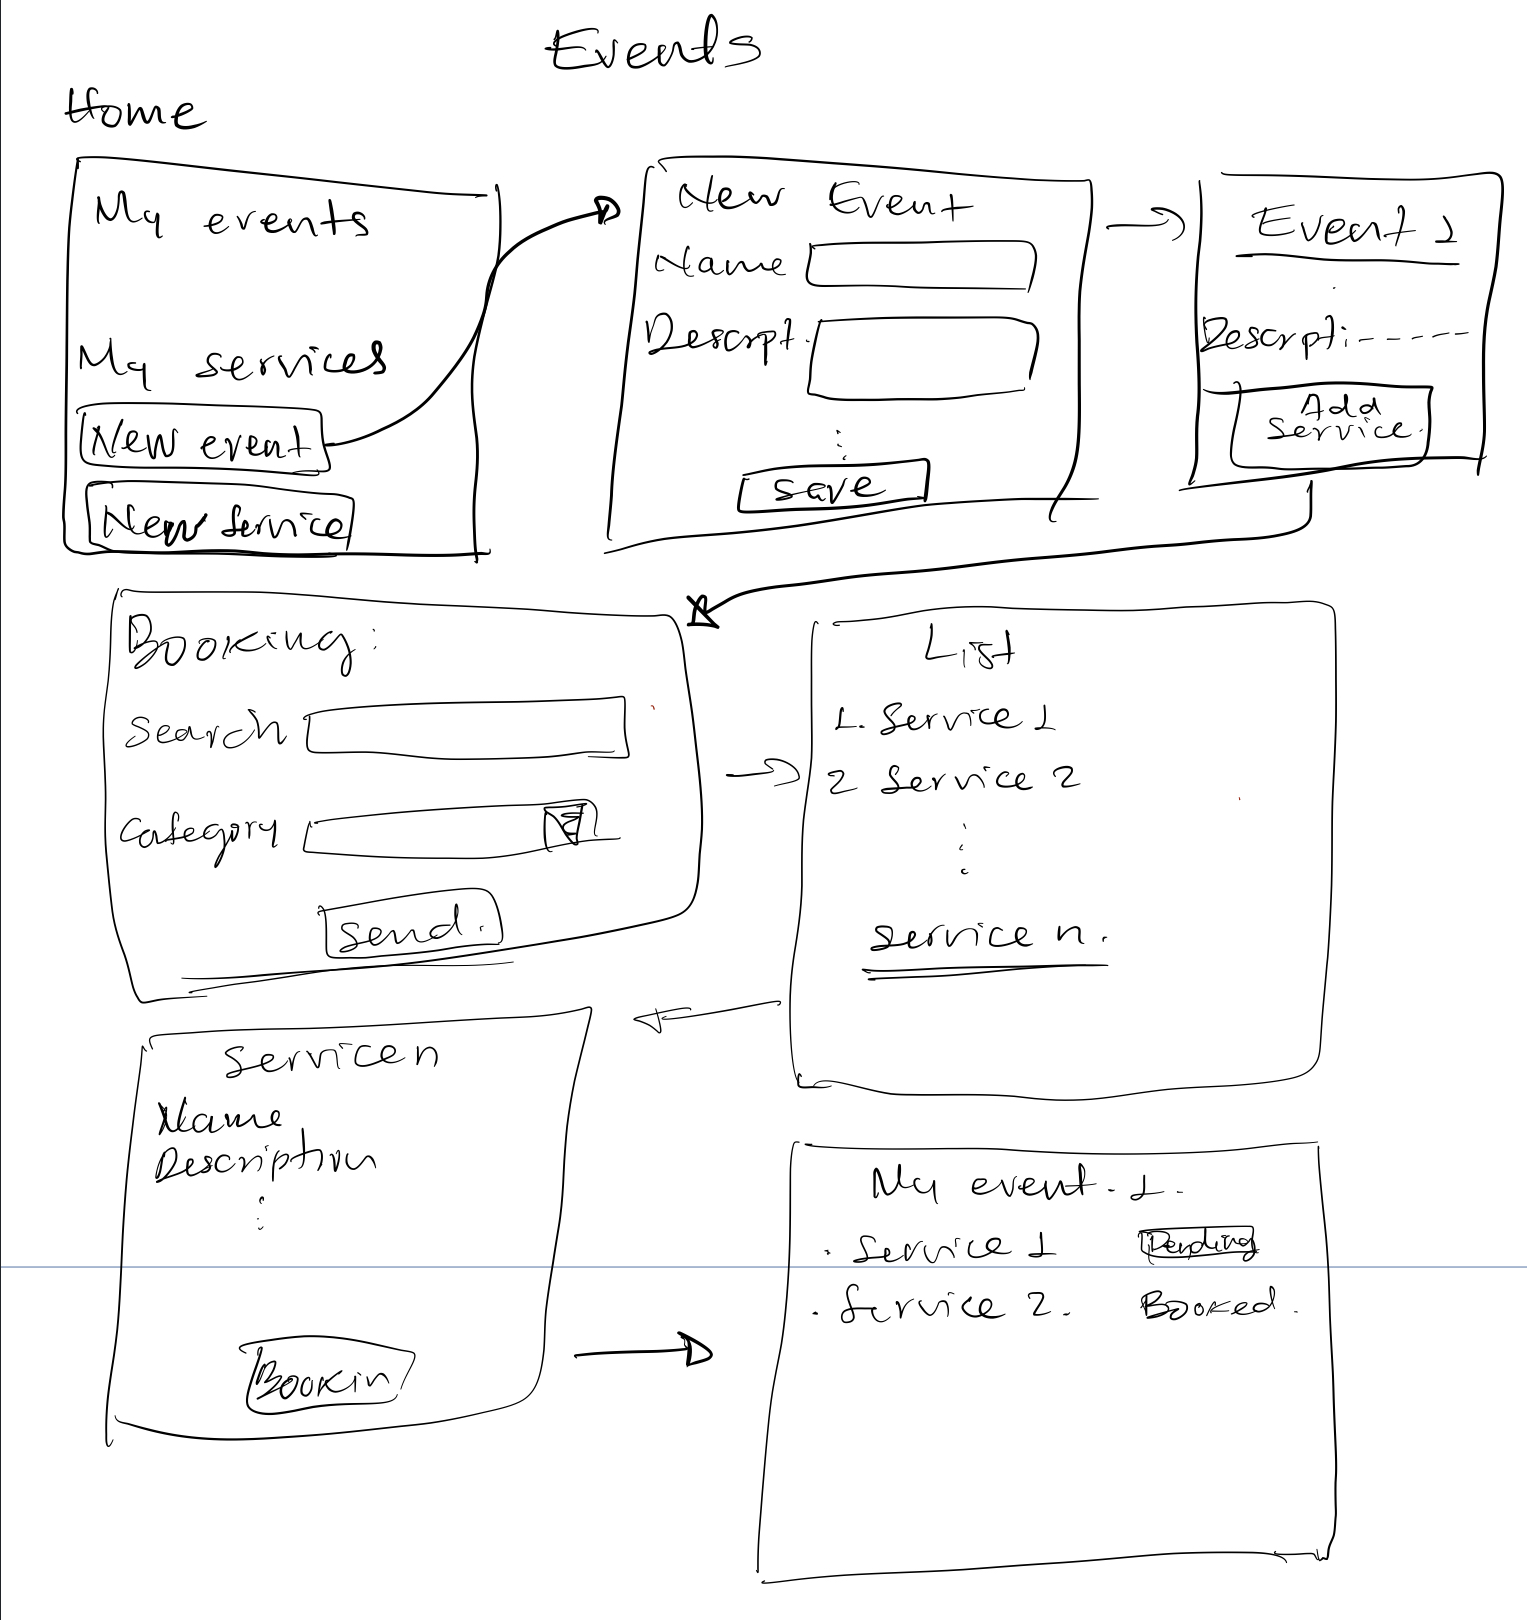 Events
Home
My events
My services
New event
New Service
New Event
Name
Descrpt.
save
Event 1
Descrpt:-----
Add
Service.
Booking:
Search
Category
Send.
List
1. Service 1
2 Service 2
service n.
Service n
Name
Description
Bookin
My event. 1.
. Service 1 Pending
. Service 2. Booked.